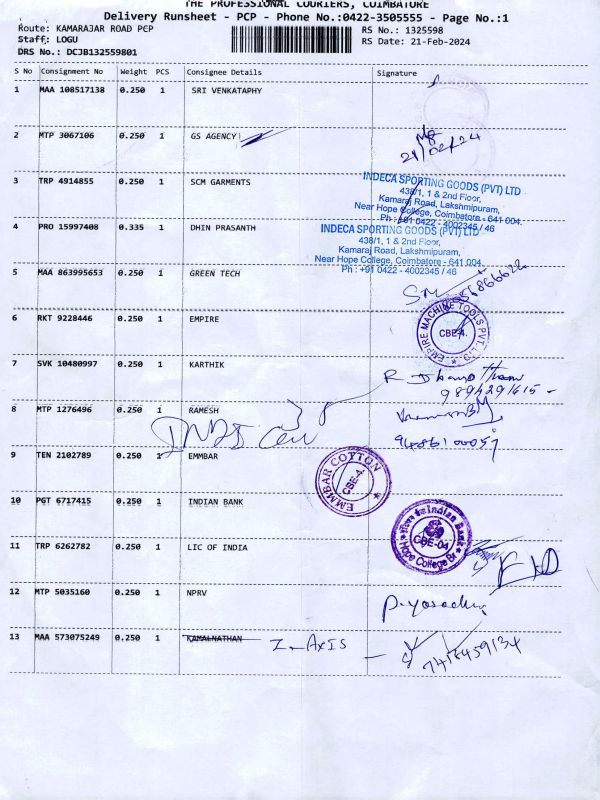 THE PROFESSIONAL COURIERS, COIMBATORE
Delivery Runsheet - PCP - Phone No.:0422-3505555 - Page No.:1
Route: KAMARAJAR ROAD PCP
RS No.: 1325598
Staff: LOGU
RS Date: 21-Feb-2024
DRS No.: DCJB132559801
S No Consignment No Weight PCS Consignee Details Signature
1 MAA 108517138 0.250 1 SRI VENKATAPHY
2 MTP 3067106 0.250 1 GS AGENCY
21/02/24
3 TRP 4914855 0.250 1 SCM GARMENTS
INDECA SPORTING GOODS (PVT) LTD
438/1, 1 & 2nd Floor,
Kamaraj Road, Lakshmipuram,
Near Hope College, Coimbatore - 641 004.
Ph : +91 0422 - 4002345 / 46
4 PRO 15997408 0.335 1 DHIN PRASANTH
INDECA SPORTING GOODS (PVT) LTD
438/1, 1 & 2nd Floor,
Kamaraj Road, Lakshmipuram,
Near Hope College, Coimbatore - 641 004.
Ph : +91 0422 - 4002345 / 46
5 MAA 863995653 0.250 1 GREEN TECH
6 RKT 9228446 0.250 1 EMPIRE
EMPIRE MACHINE TOOLS PVT. LTD
CBE-4.
7 SVK 10480997 0.250 1 KARTHIK
9894291615 -
8 MTP 1276496 0.250 1 RAMESH
9486100057
9 TEN 2102789 0.250 1 EMMBAR
EMMBAR COTTON
CBE-4.
10 PGT 6717415 0.250 1 INDIAN BANK
Indian Bank
CBE-04
Hope College Br
11 TRP 6262782 0.250 1 LIC OF INDIA
12 MTP 5035160 0.250 1 NPRV
13 MAA 573075249 0.250 1 KAMALNATHAN Z-AXIS
7418459134